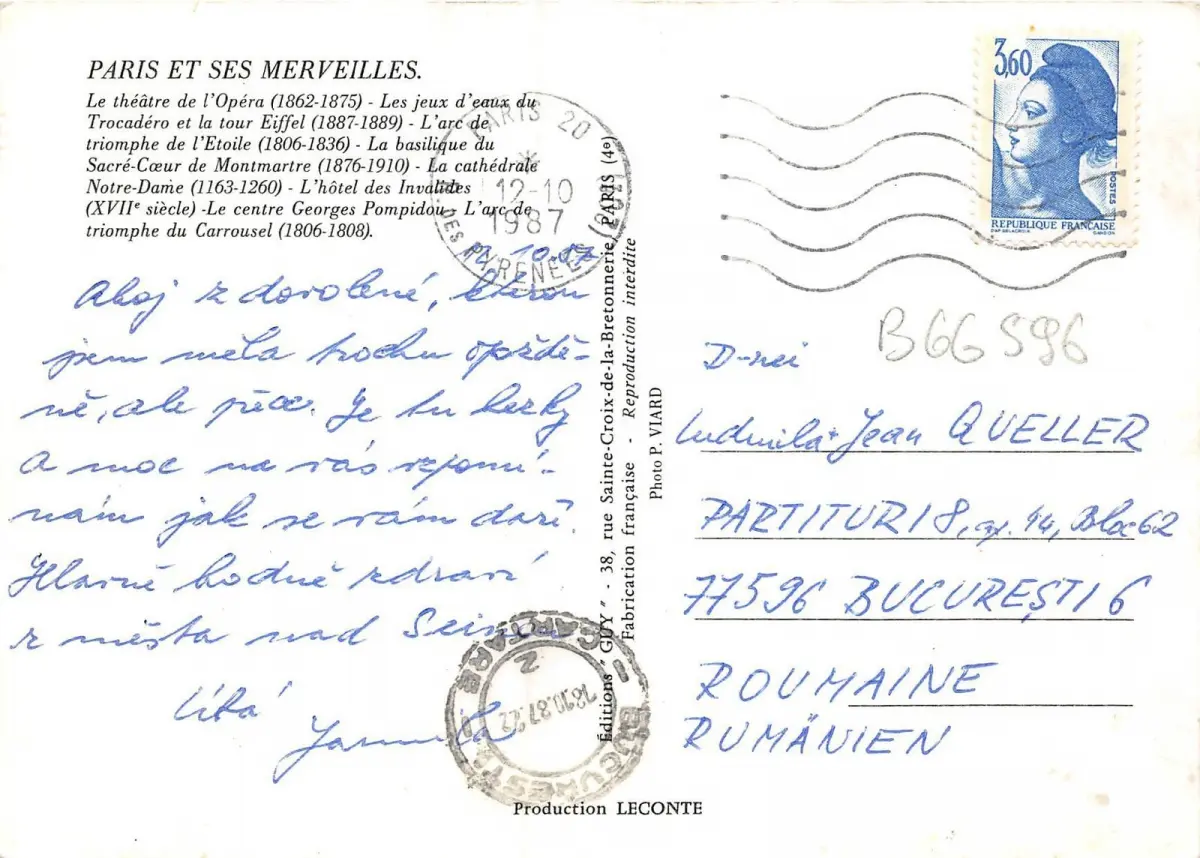 PARIS ET SES MERVEILLES.
Le théâtre de l'Opéra (1862-1875) - Les jeux d'eaux du
Trocadéro et la tour Eiffel (1887-1889) - L'arc de
triomphe de l'Etoile (1806-1836) - La basilique du
Sacré-Cœur de Montmartre (1876-1910) - La cathédrale
Notre-Dame (1163-1260) - L'hôtel des Invalides
(XVIIe siècle) -Le centre Georges Pompidou - L'arc de
triomphe du Carrousel (1806-1808).
PARIS 20
12-10
1987
R. DES PYRENEES
12.10.87
Ahoj z dovolené, kterou
jsem měla trochu opoždě-
ně, ale přece. Je tu hezky
a moc na vás vzpomí-
nám jak se vám daří.
Hlavně hodně zdraví
z města nad Seinou
Jarmila
Éditions "GUY" - 38, rue Sainte-Croix-de-la-Bretonnerie, PARIS (4e)
Fabrication française - Reproduction interdite
Photo P. VIARD
3,60
POSTES
REPUBLIQUE FRANÇAISE
D'AP. DELACROIX
GANDON
B66596
Ludmila + Jean QUELLER
PARTITURI 8, ap. 14, Bloc 62
77596 BUCUREȘTI 6
ROUMAINE
RUMÄNIEN
BUCURESTI
CARTARE
2
18.10.87.22
Production LECONTE